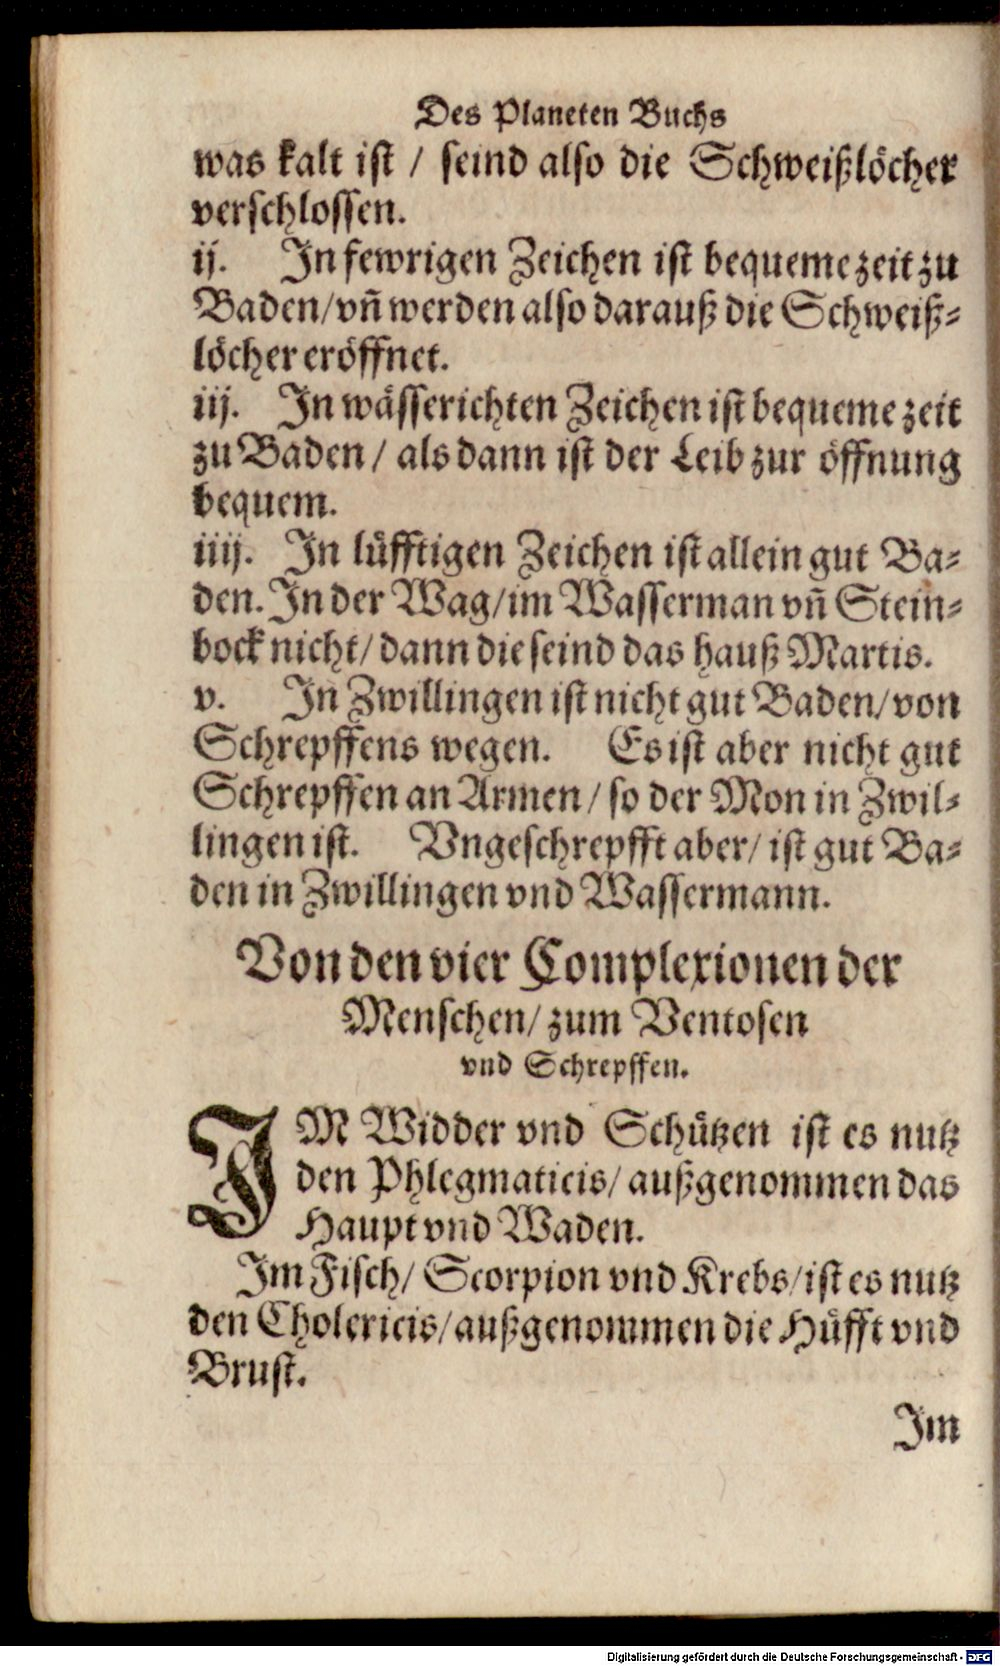 Des Planeten Buchs
was kalt ist / seind also die Schweißlöcher
verschlossen.
ij. In fewrigen Zeichen ist bequeme zeit zu
Baden/ vñ werden also darauß die Schweiß-
löcher eröffnet.
iij. In wässerichten Zeichen ist bequeme zeit
zu Baden / als dann ist der Leib zur öffnung
bequem.
iiij. In lüfftigen Zeichen ist allein gut Ba-
den. In der Wag/ im Wasserman vñ Stein-
bock nicht/ dann die seind das hauß Martis.
v. In Zwillingen ist nicht gut Baden/ von
Schrepffens wegen. Es ist aber nicht gut
Schrepffen an Armen / so der Mon in Zwil-
lingen ist. Vngeschrepfft aber/ ist gut Ba-
den in Zwillingen vnd Wassermann.
Von den vier Complexionen der
Menschen/ zum Ventosen
vnd Schrepffen.
IM Widder vnd Schützen ist es nutz
den Phlegmaticis/ außgenommen das
Haupt vnd Waden.
Im Fisch/ Scorpion vnd Krebs/ ist es nutz
den Cholericis/ außgenommen die Hüfft vnd
Brust.
Im
Digitalisierung gefördert durch die Deutsche Forschungsgemeinschaft - DFG